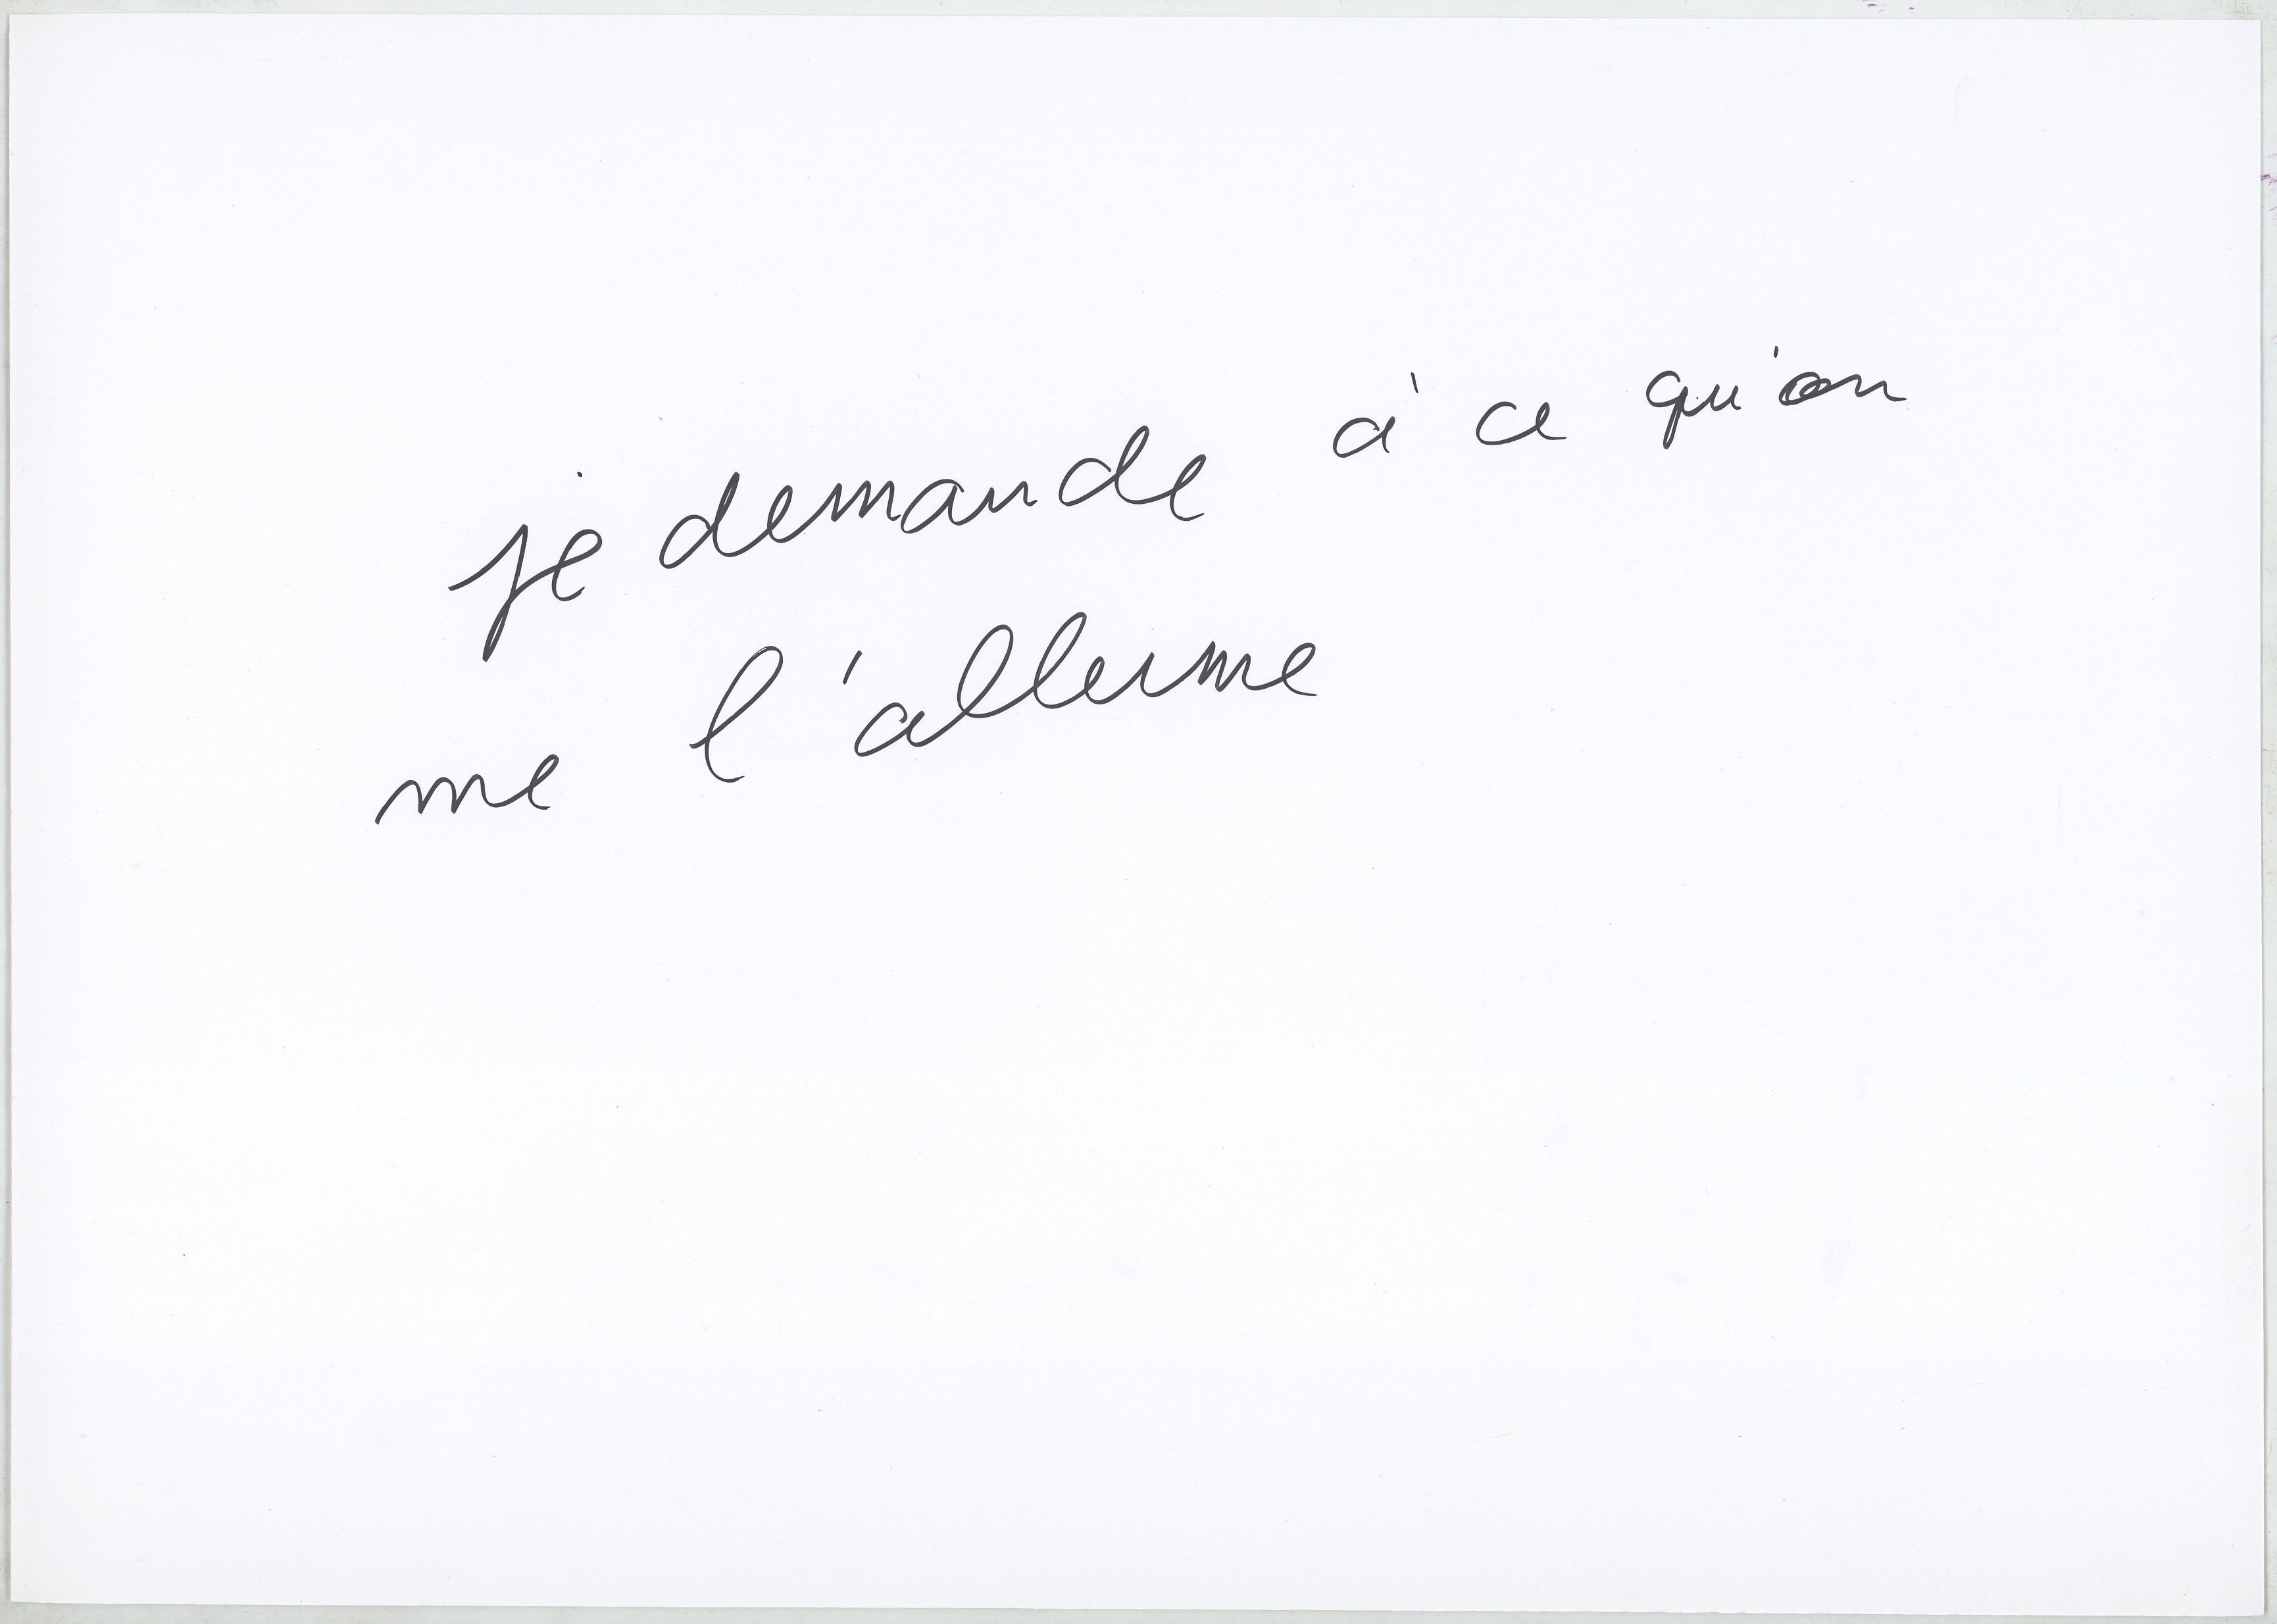 je demande à ce qu'on
me l'allerme